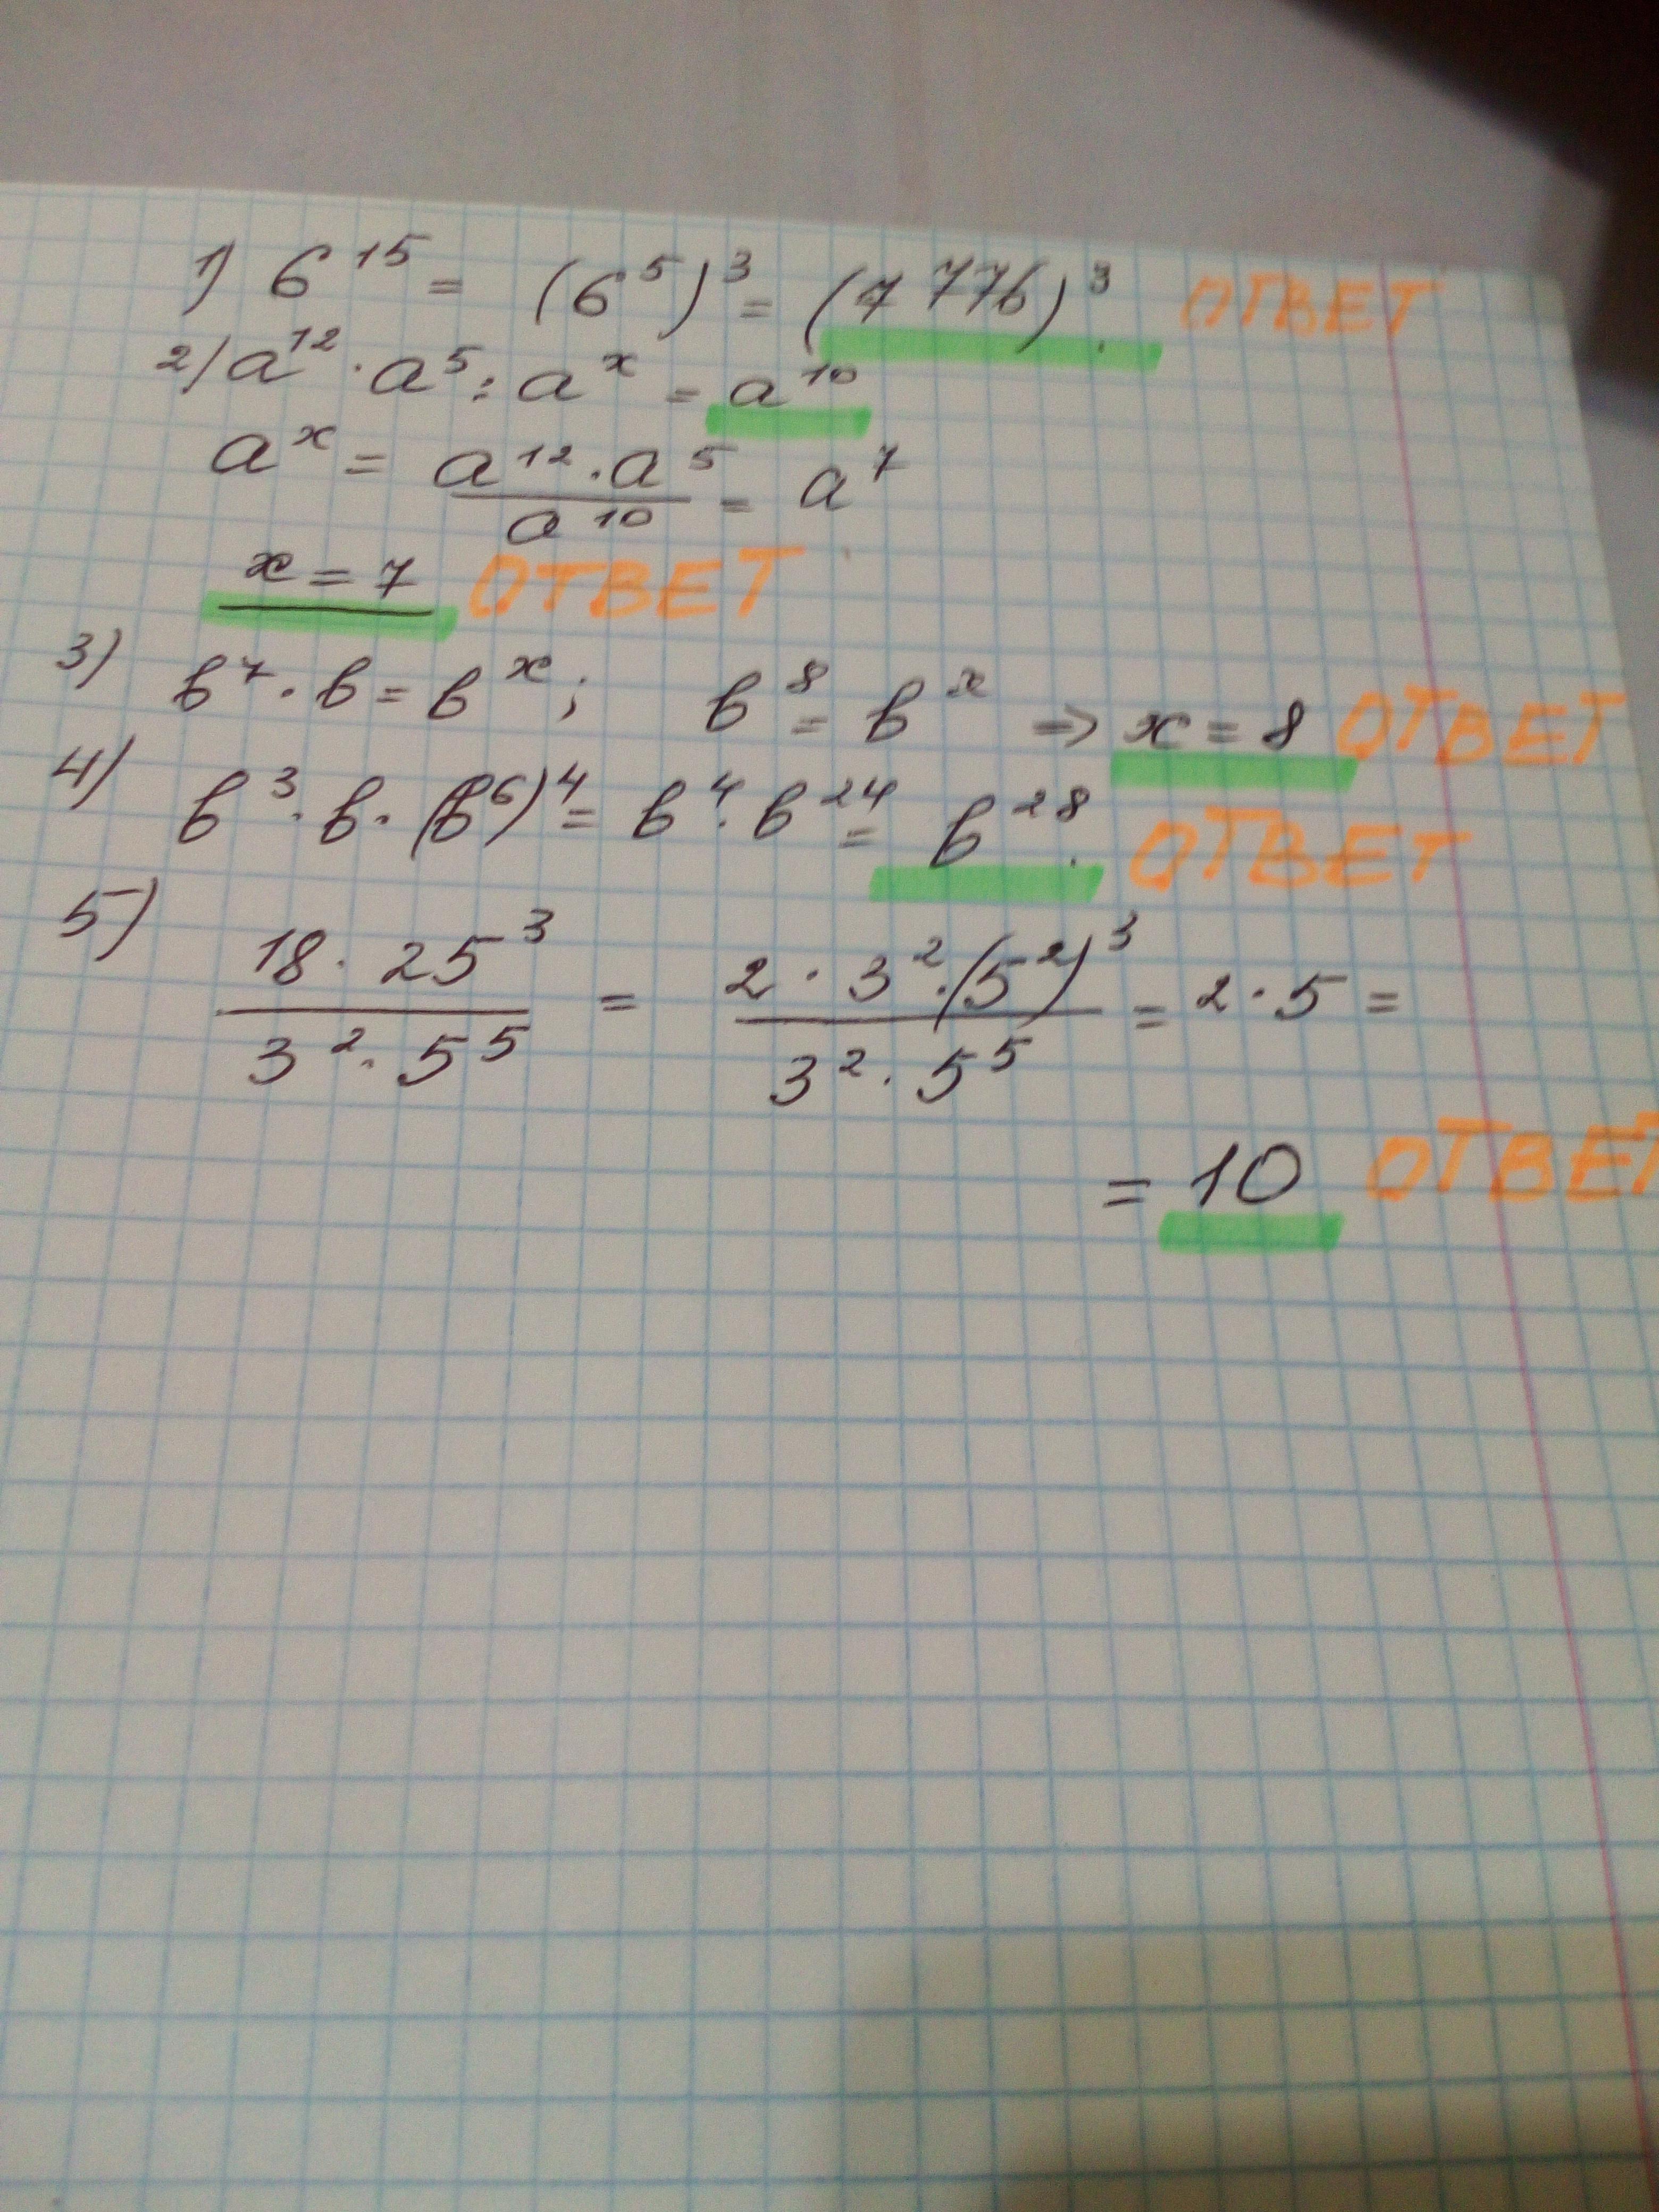 1) 6^15 = (6^5)^3 = (7 776)^3 ОТВЕТ
2) a^12 · a^5 : a^x = a^10
a^x = (a^12 · a^5)/(a^10) = a^7
x = 7 ОТВЕТ
3) b^7 · b = b^x ; b^8 = b^x ⇒ x = 8 ОТВЕТ
4) b^3 · b · (b^6)^4 = b^4 · b^24 = b^28. ОТВЕТ
5) (18 · 25^3)/(3^2 · 5^5) = (2 · 3^2 · (5^2)^3)/(3^2 · 5^5) = 2 · 5 =
= 10 ОТВЕТ